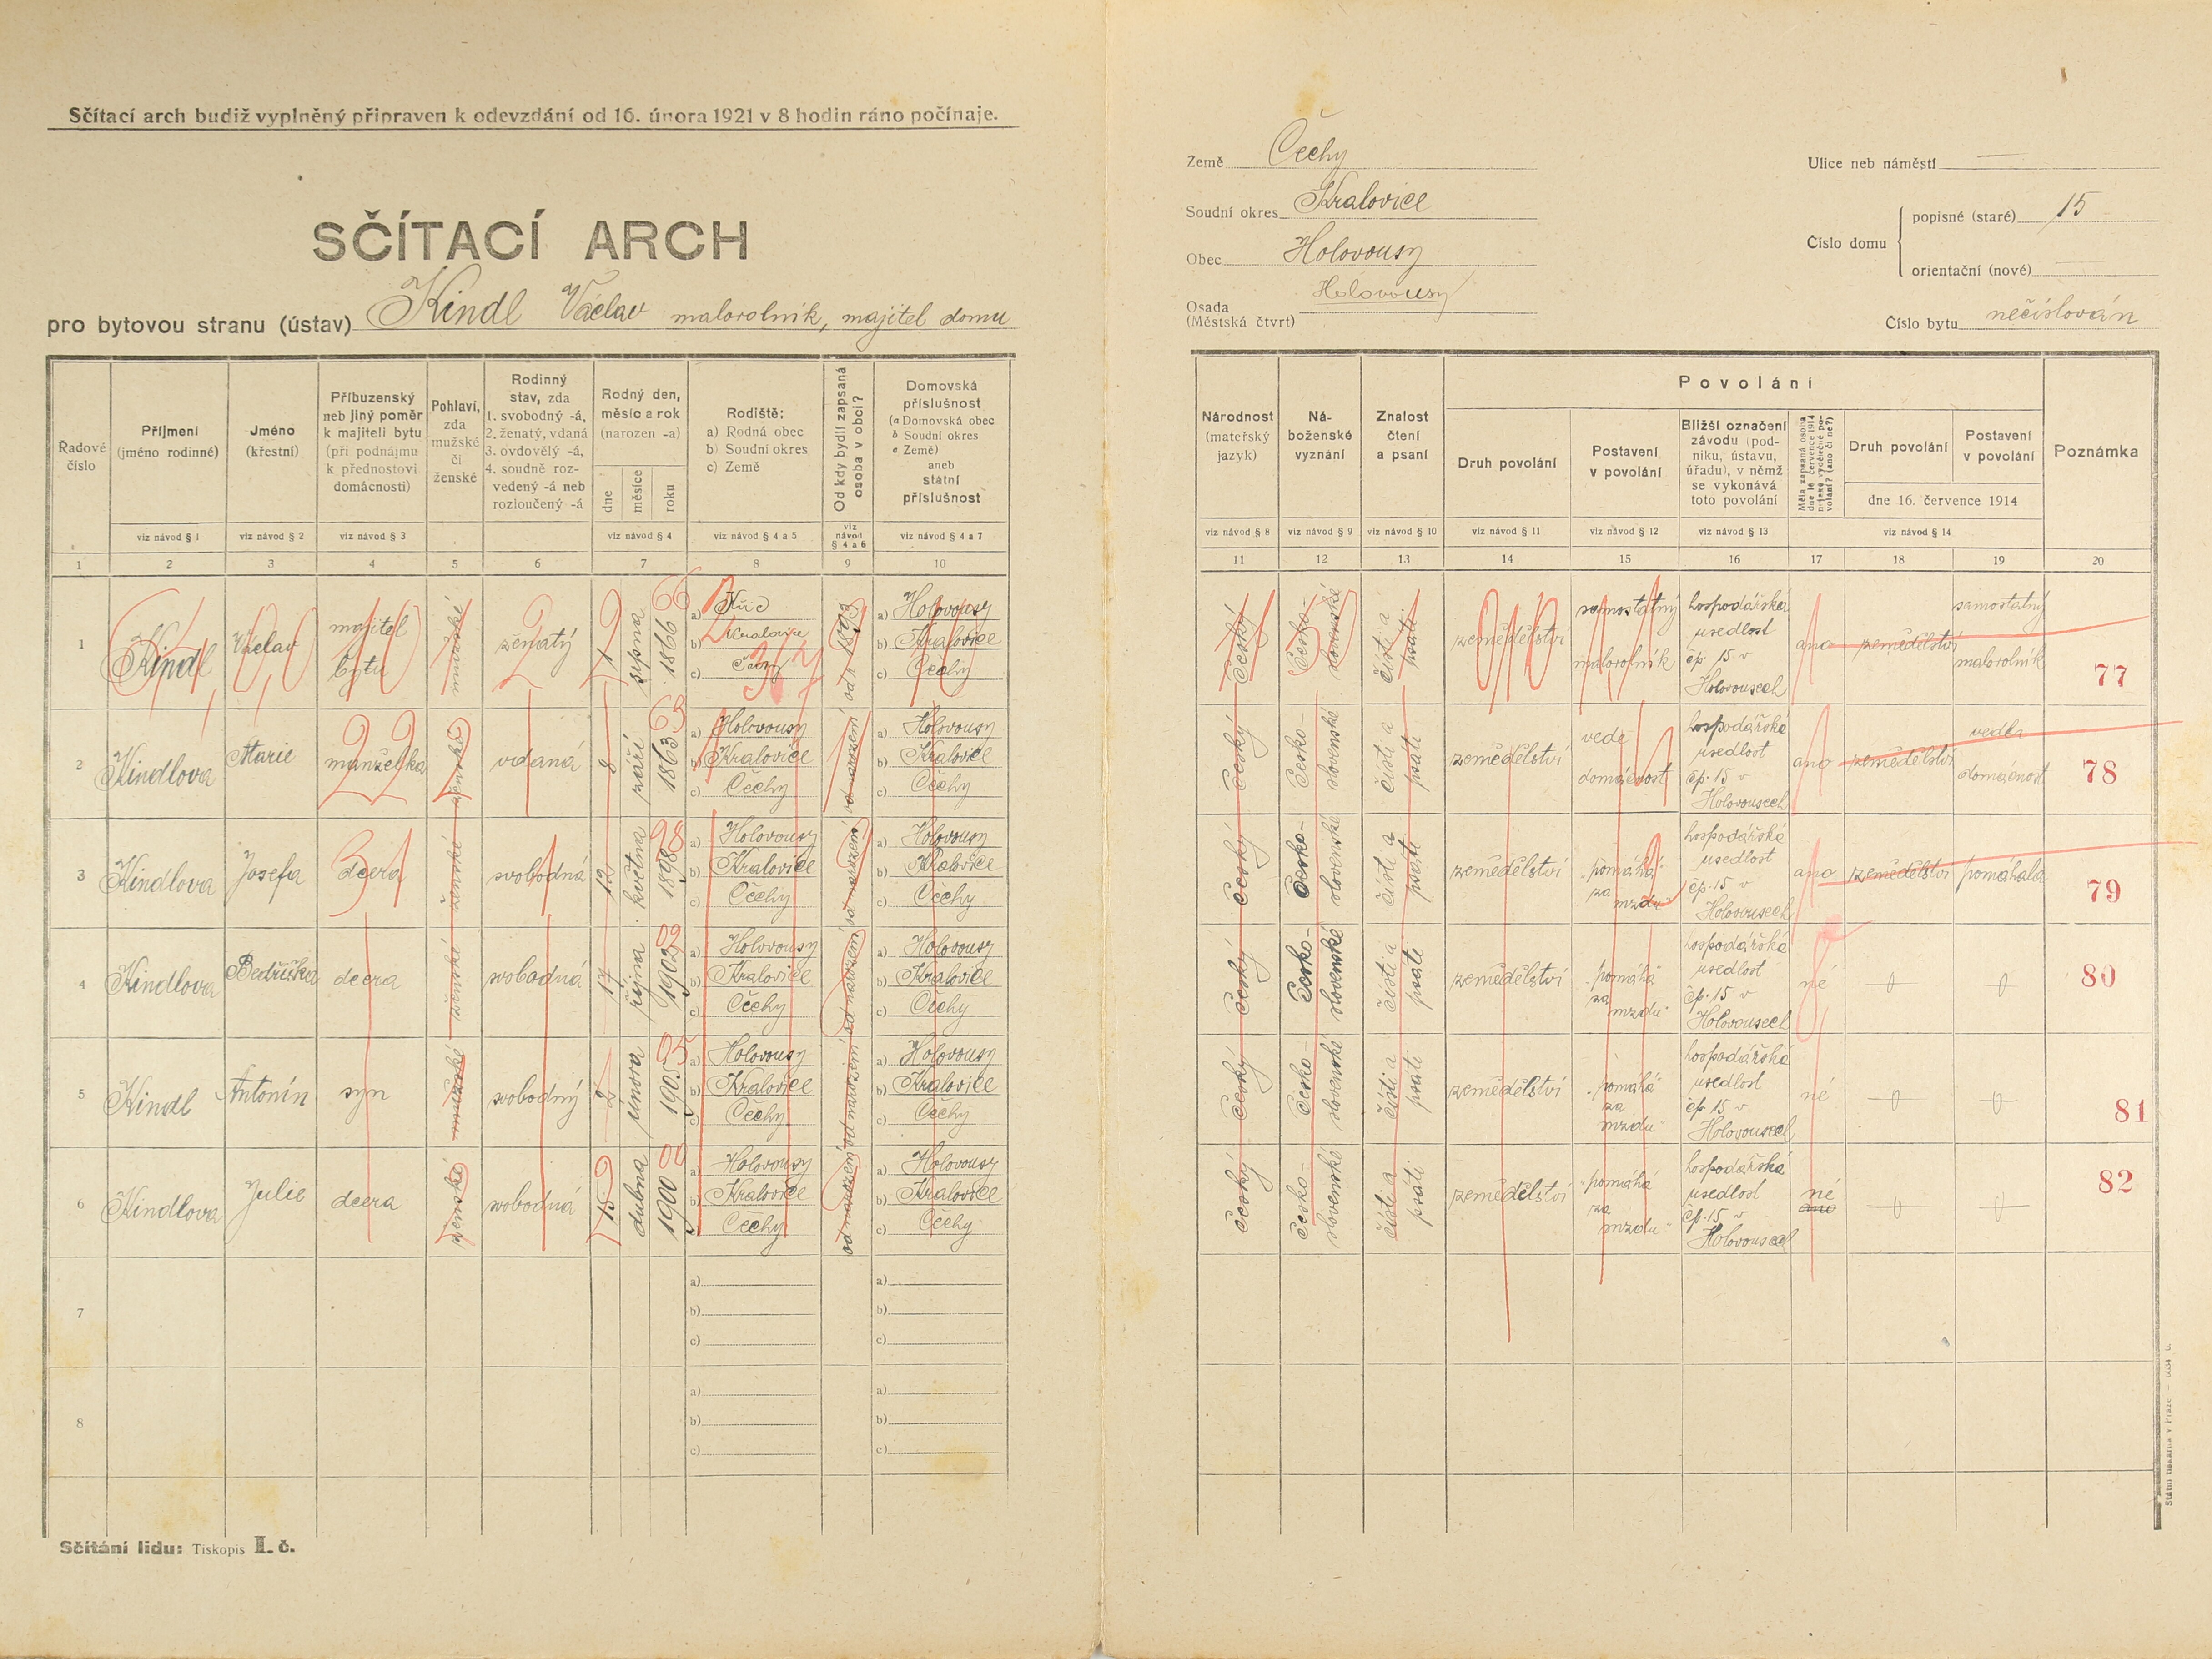 Sčítací arch budiž vyplněný připraven k odevzdání od 16. února 1921 v 8 hodin ráno počínaje.
SČÍTACÍ ARCH
pro bytovou stranu (ústav) Kindl Václav malorolník, majitel domu
Země Čechy
Soudní okres Kralovice
Obec Holovousy
Osada Holovousy
(Městská čtvrť)
Ulice neb náměstí —
Číslo domu
popisné (staré) 15
orientační (nové)
Číslo bytu nečíslován
Řadové číslo
Příjmení (jméno rodinné)
Jméno (křestní)
Příbuzenský neb jiný poměr k majiteli bytu (při podnájmu k přednostovi domácnosti)
Pohlaví, zda mužské či ženské
Rodinný stav, zda 1. svobodný -á, 2. ženatý, vdaná 3. ovdovělý -á, 4. soudně rozvedený -á neb rozloučený -á
Rodný den, měsíc a rok (narozen -a)
dne měsíce roku
Rodiště: a) Rodná obec b) Soudní okres c) Země
Od kdy bydlí zapsaná osoba v obci?
Domovská příslušnost (a Domovská obec b Soudní okres c Země) aneb státní příslušnost
viz návod § 1 viz návod § 2 viz návod § 3 viz návod § 4 viz návod § 4 a 5 viz návod § 4 a 6 viz návod § 4 a 7
1 2 3 4 5 6 7 8 9 10
Národnost (mateřský jazyk)
Náboženské vyznání
Znalost čtení a psaní
Povolání
Druh povolání
Postavení v povolání
Bližší označení závodu (podniku, ústavu, úřadu), v němž se vykonává toto povolání
Měla zapsaná osoba dne 16. července 1914 nějaké výdělečné povolání? (ano či ne?)
Druh povolání
Postavení v povolání
dne 16. července 1914
Poznámka
viz návod § 8 viz návod § 9 viz návod § 10 viz návod § 11 viz návod § 12 viz návod § 13 viz návod § 14
11 12 13 14 15 16 17 18 19 20
1 Kindl Václav majitel bytu mužské ženatý 1 srpna 1866 a) b) Kralovice c) Čechy od r. a) Holovousy b) Kralovice c) Čechy
český česko-slovenské čísti a psáti zemědělství samostatný malorolník hospodářská usedlost čp. 15 v Holovousech ano zemědělství samostatný malorolník 77
2 Kindlova Marie manželka ženské vdaná 8 září 1863 a) Holovousy b) Kralovice c) Čechy od narození a) Holovousy b) Kralovice c) Čechy
český česko-slovenské čísti a psáti zemědělství vede domácnost hospodářská usedlost čp. 15 v Holovousech ano zemědělství vedla domácnost 78
3 Kindlova Josefa dcera ženské svobodná 12 května 1898 a) Holovousy b) Kralovice c) Čechy od narození a) Holovousy b) Kralovice c) Čechy
český česko-slovenské čísti a psáti zemědělství "pomáhá za mzdu" hospodářská usedlost čp. 15 v Holovousech ano zemědělství pomáhala 79
4 Kindlova Bedřiška dcera ženské svobodná 17 října 1902 a) Holovousy b) Kralovice c) Čechy od narození a) Holovousy b) Kralovice c) Čechy
český česko-slovenské čísti a psáti zemědělství "pomáhá za mzdu" hospodářská usedlost čp. 15 v Holovousech né —0— 0 80
5 Kindl Antonín syn mužské svobodný 2 února 1905 a) Holovousy b) Kralovice c) Čechy od narození a) Holovousy b) Kralovice c) Čechy
český česko-slovenské čísti a psáti zemědělství "pomáhá za mzdu" hospodářská usedlost čp. 15 v Holovousech né —0— —0— 81
6 Kindlova Julie dcera ženské svobodná 15 dubna 1900 a) Holovousy b) Kralovice c) Čechy od narození a) Holovousy b) Kralovice c) Čechy
český česko-slovenské čísti a psáti zemědělství "pomáhá za mzdu" hospodářská usedlost čp. 15 v Holovousech né ano —0— —0— 82
7 a) b) c) a) b) c)
8 a) b) c) a) b) c)
Sčítání lidu: Tiskopis I. č.